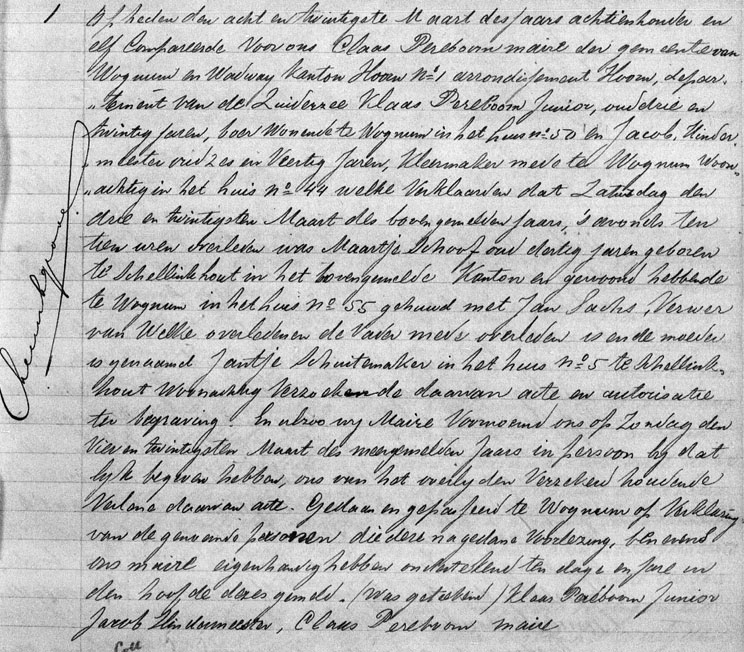 1 Op heden den acht en twintigste Maart des jaars achtienhonder en
elf Compareerde Voor ons Claas Pereboom maire der gemeente van
Wognum en Wadway Kanton Hoorn No 1 arrondissement Hoorn, depar-
"tement van de Zuiderzee Klaas Pereboom Junior, oud drie en
twintig jaren, boer Wonende te Wognum in het huis no 50 en Jacob Hinder-
meester oud zes en Veertig Jaren, Kleermaker mede te Wognum Woon-
"achtig in het huis no 44 welke Verklaarden dat Zatusdag den
drie en twintigsten Maart des bovengemelden jaars, 's avonds ten
tien uren overleden was Maartje Schoof oud dertig jaren geboren
te Schellinkhout in het bovengemelde Kanton en gewoond hebbende
te Wognum in het huis no 55 gehuwd met Jan Sachs, Verwer
van Welke overledenen de Vader mede overleden is en de moeder
is genaamd Jantje Schuitemaker in het huis no 5 te Schellink-
hout Woonachtig Verzoekende daarvan acte en autorisatie
ter begraving. En alzoo wy Maire Voornoemd ons op Zondag den
Vier en twintigsten Maart des meergemelden Jaars in persoon by dat
lyk begeven hebben, ons van het overlyden Verzekerd houdende
Verlene daarvan acte. Gedaan en gepasseerd te Wognum op Verklaring
van de genoemde personen die deze na gedane Voorlezing, benevens
ons maire eigenhandig hebben ondertekend ten dage en jare in
den hoofde dezes gemeld. (Was getekend) Klaas Pereboom Junior
Jacob Hindermeester, Claas Pereboom maire